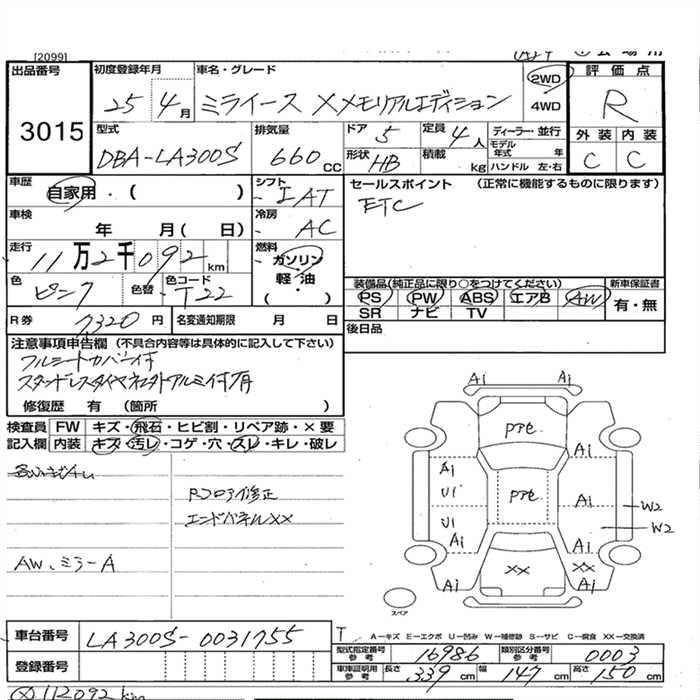 [2099]
出品番号 3015
初度登録年月 25 4月
車名・グレード ミライース X メモリアルエディション
2WD 4WD
評価点 R
外装 C 内装 C
型式 DBA-LA300S
排気量 660 cc
ドア 5
形状 HB
定員 4人
積載 kg
ディーラー・並行
モデル年式 年
ハンドル 左・右
車歴 自家用・( )
シフト IAT
セールスポイント (正常に機能するものに限ります)
ETC
車検 年 月( 日)
冷房 AC
走行 11万2千092 km
燃料 ガソリン 軽油 ( ・ )
色 ピンク 色替 色コード T22
装備品(純正品に限り○をつけてください)
PS PW ABS エアB AW
SR ナビ TV
新車保証書 有・無
R券 7320円
名変通知期限 月 日
後日品
注意事項申告欄 (不具合内容等は具体的に記入して下さい)
フルシートカバー付
修復歴 有 (箇所 )
検査員記入欄
FW キズ・飛石・ヒビ割・リペア跡・×要
内装 キズ・汚レ・コゲ・穴・スレ・キレ・破レ
AW、ミラーA
Rフロア修正
エンドパネルXX
A1
A1
A1
A1
U1
U1
A1
A1
A1
A1
A1
W2
W2
XX
XX
スペア
車台番号 LA300S-0031755
登録番号
A−キズ E−エクボ U−凹み W−補修跡 S−サビ C−腐食 XX−交換済
型式指定番号 参考 16986
類別区分番号 参考 0003
車車証明用 参考 長さ 339 cm 幅 147 cm 高さ 150 cm
112092 km